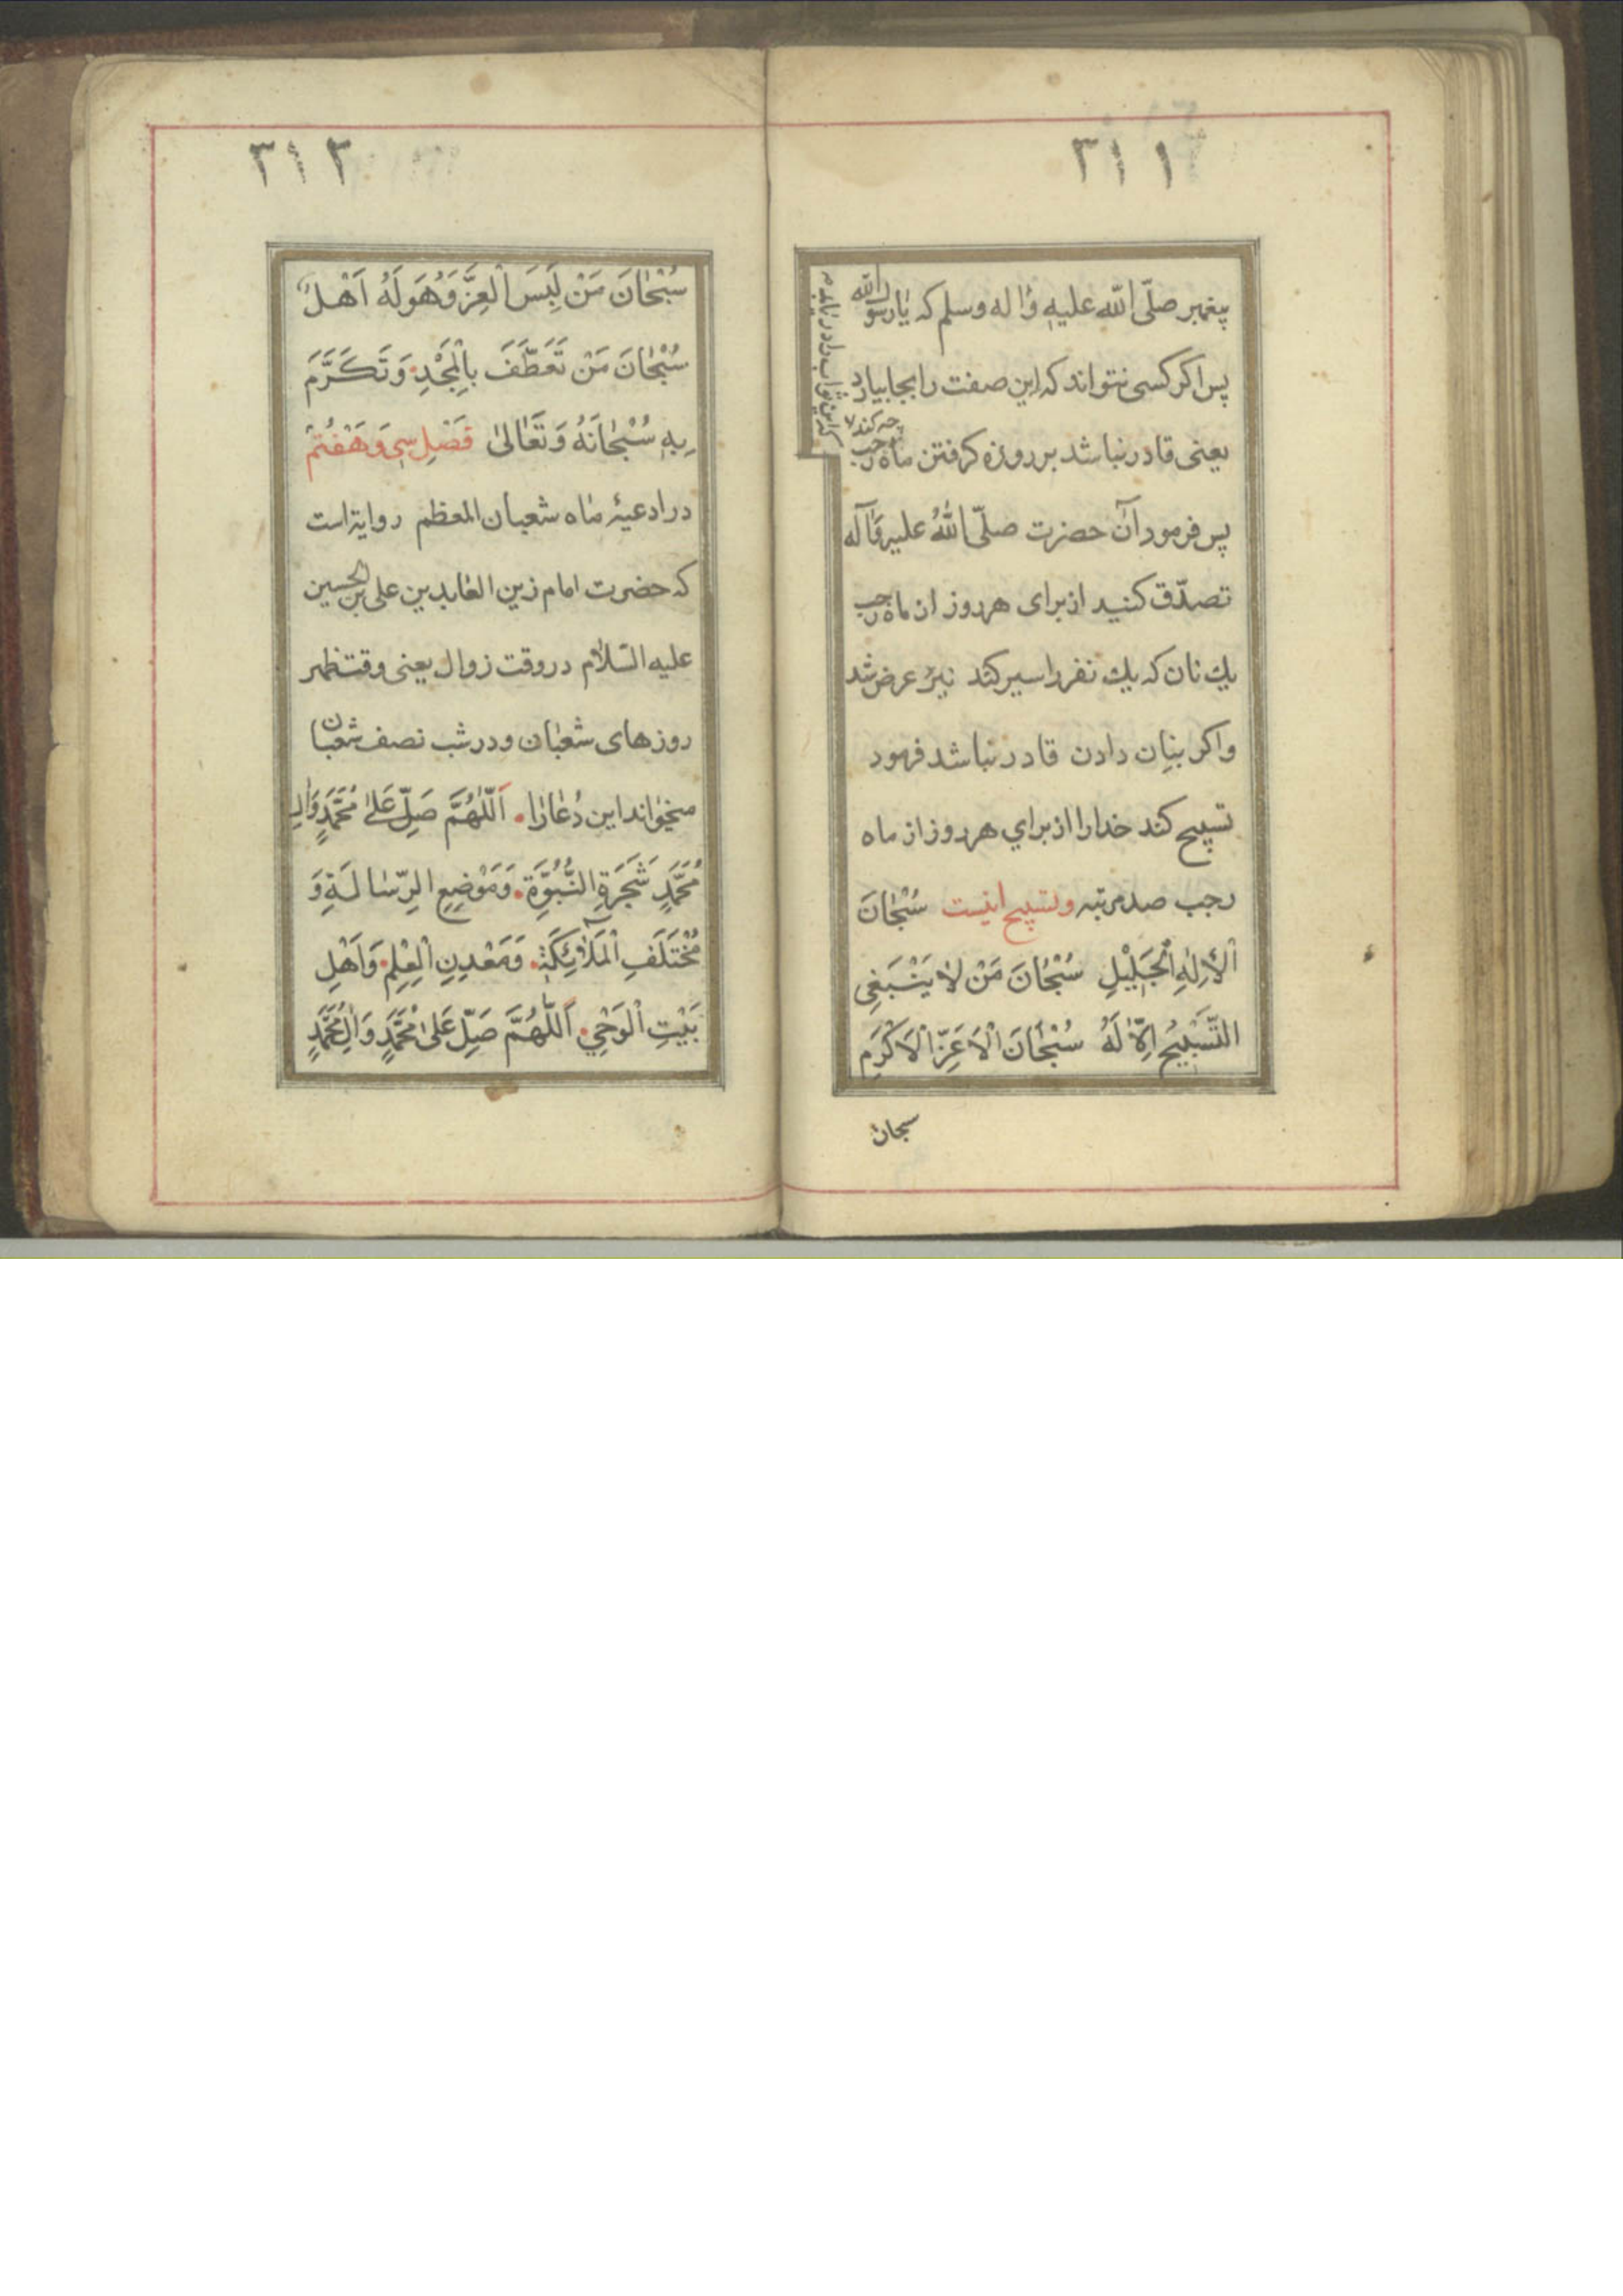 ۳۱۱
پیغمبر صلّی اللّه علیهِ وٰاله وسلم که یٰارسول اللّه
پس اکر کسی نتواند که این صفت را بجا بیارد
چه کند
یعنی قادر نباشد بر روزه کرفتن ماه رجب
که این ثواب را دریابد
پس فرمود آن حضرت صلّی اللّٰهُ علیه وَآله
تصدّق کنید از برای هر روز از ماه رجب
یك نان که یك نفر را سیر کند نیز عرض شد
واکر بنان دادن قادر نباشد فرمود
تسبیح کند خدارا از براي هر روز از ماه
رجب صد مرتبه وتسبیح اینست سُبْحٰانَ
الْأِلٰهِ الْجَلِيْلِ سُبْحٰانَ مَنْ لٰا يَنْبَغِی
التَّسْبِيْحُ اِلّٰا لَهُ سُبْحٰانَ الْاَعَزِّ الْاَكْرَمِ
سبحان
۳۱۲
سُبْحٰانَ مَنْ لَبِسَ الْعِزَّ وَهُوَ لَهُ اَهْلٌ
سُبْحٰانَ مَنْ تَعَطَّفَ بِالْمَجْدِ وَتَكَرَّمَ
بِهِ سُبْحٰانَهُ وَتَعٰالىٰ فَصْلِ سِی وَهَفْتُمْ
در ادعیۀ مٰاه شعبان المعظم روایة است
که حضرت امام زین العٰابدین علی بن الحسین
علیه السّلٰام در وقت زوال یعنی وقت ظهر
روزهای شعبٰان ودر شب نصف شعبٰان
میخوٰاند این دُعٰا رٰا اَللّٰهُمَّ صَلِّ عَلىٰ مُحَمَّدٍ وَاٰلِ
مُحَمَّدٍ شَجَرَةِ النُّبُوَّةِ وَمَوْضِعِ الرِّسٰالَةِ وَ
مُخْتَلَفِ الْمَلٰٓائِكَةِ وَمَعْدِنِ الْعِلْمِ وَاَهْلِ
بَيْتِ الْوَحْيِ اَللّٰهُمَّ صَلِّ عَلىٰ مُحَمَّدٍ وَاٰلِ مُحَمَّدٍ